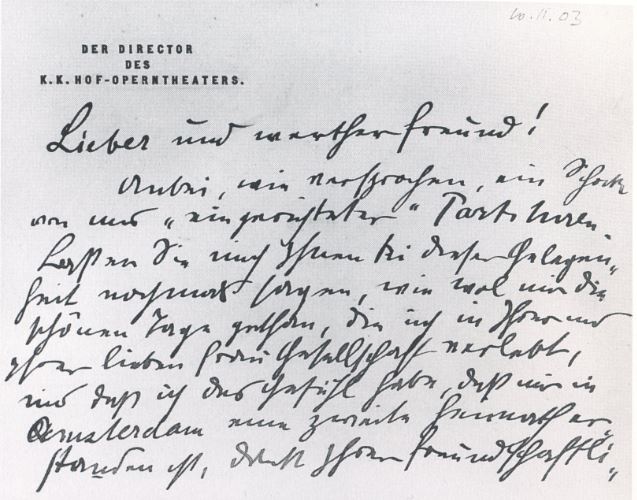 10.11.03
DER DIRECTOR
DES
K.K. HOF-OPERNTHEATERS.
Lieber und werther Freund!
Anbei, wie versprochen, ein Schock
von mir „eingerichteter“ Partituren.
Laßen Sie mich Ihnen bei dieser Gelegen„
heit nochmals sagen, wie wol mir die
schönen Tage gethan, die ich in Ihrer und
Ihrer lieben Frau Gesellschaft verlebt,
und daß ich das Gefühl habe, daß mir in
Amsterdam eine zweite Heimath er„
standen ist, dank Ihrer freundschaftli„